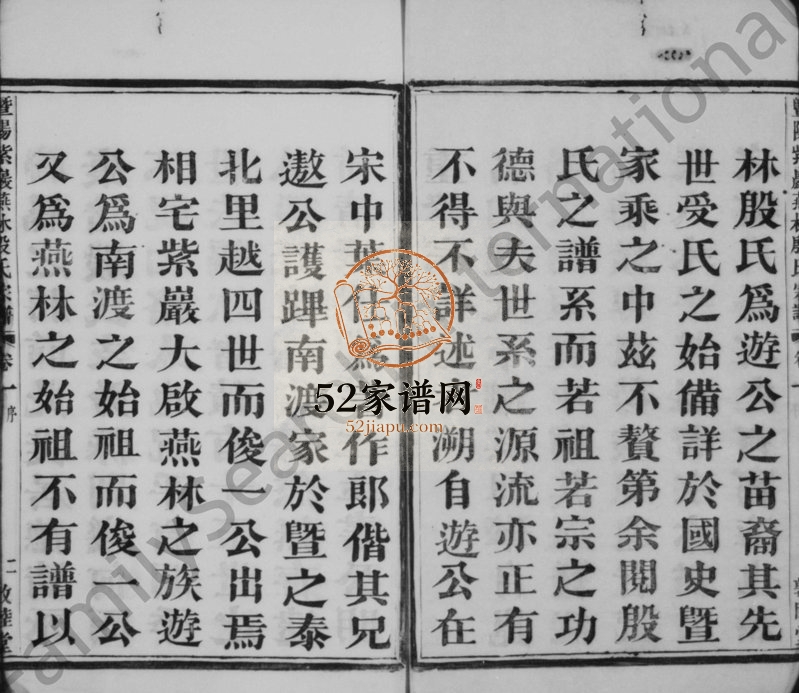 林殷氏爲遊公之苗裔其先
世受氏之始備詳於國史曁
家乘之中茲不贅第余閱殷
氏之譜系而若祖若宗之功
德與夫世系之源流亦正有
不得不詳述溯自遊公在
宋中葉仕爲作郎偕其兄
遨公護蹕南渡家於曁之泰
北里越四世而俊一公出焉
相宅紫巖大啟燕林之族遊
公爲南渡之始祖而俊一公
又爲燕林之始祖不有譜以
曁陽紫巖燕林殷氏宗譜 卷一 序 二 敦睦堂
52家谱网
52jiapu.com
FamilySearch International